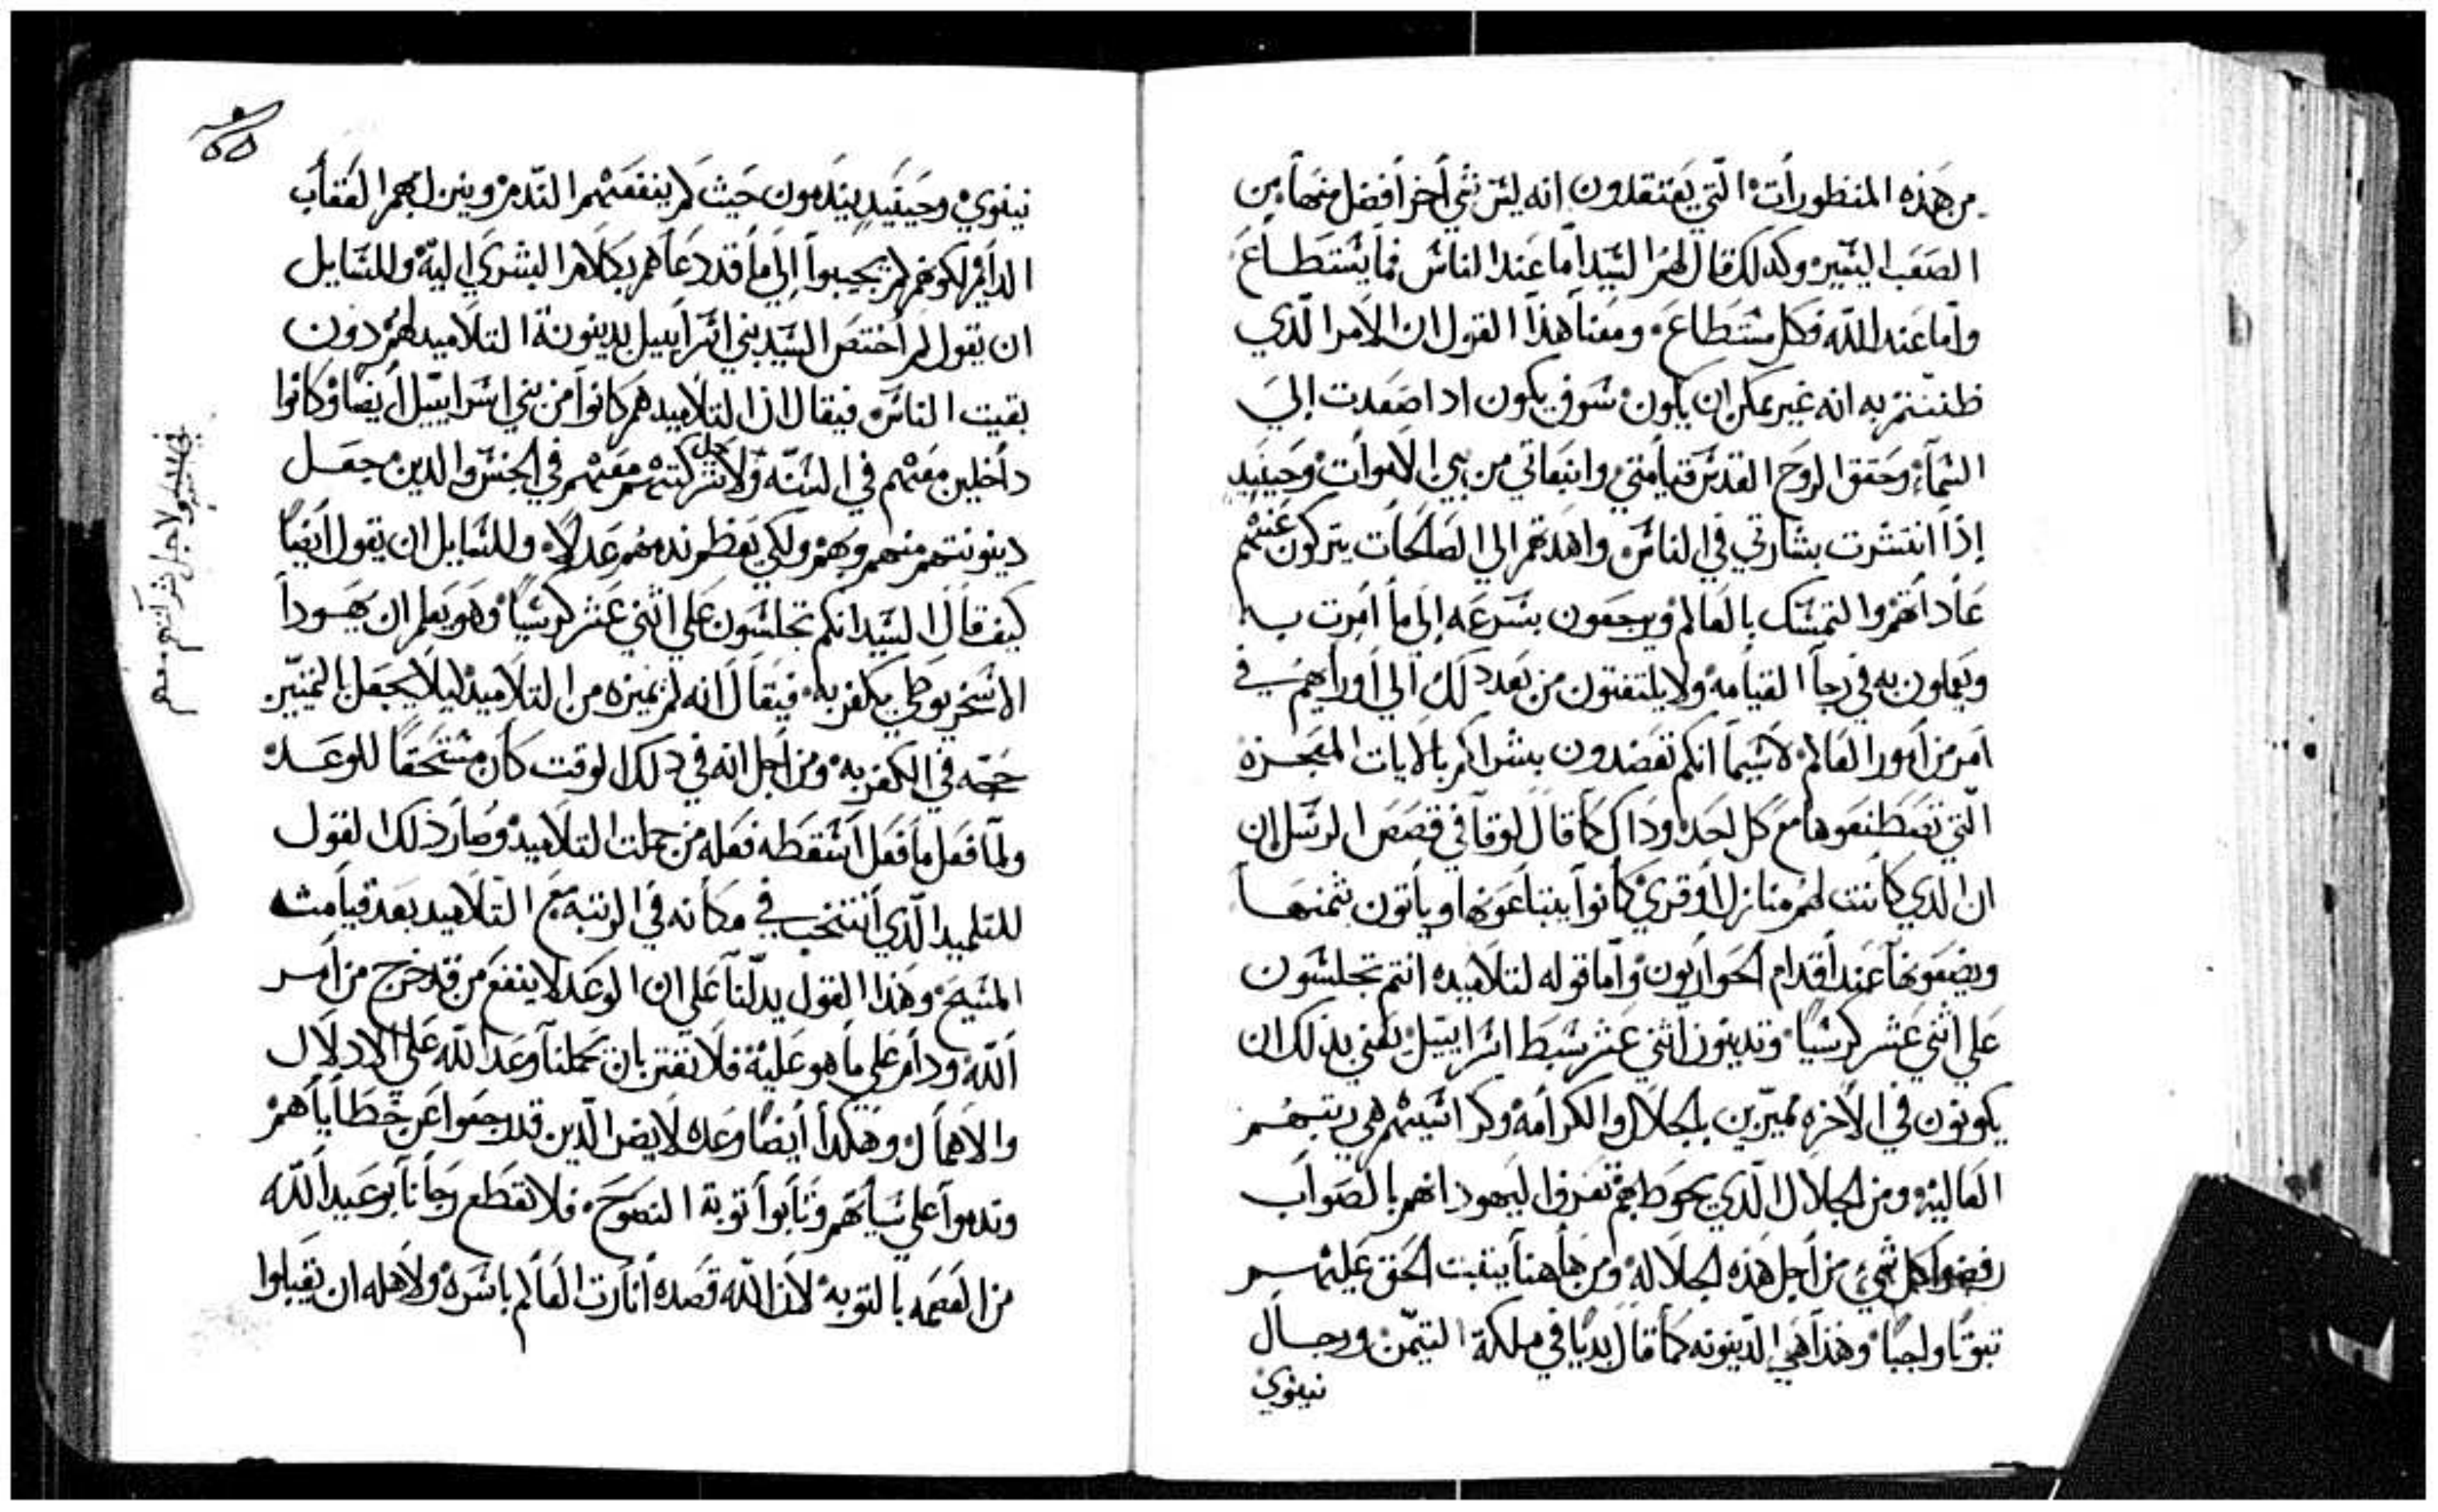 من هذه المنظورات التي يعتقدون انه ليس شي أخر أفضل منها من
الصعب اليسير وكدلك قال لهم السيد اما عند الناس فما يستطاع
واما عند الله فكل مستطاع ومعنا هذا القول ان الامر الذي
ظننتم به انه غير ممكن ان يكون سوف يكون ادا صعدت إلي
السماء وحقق الروح القدس قيامتي وانبعاتي من بين الاموات وحينيد
إذا انتشرت بشارتي في الناس واهدتهم الي الصالحات يتركون عنهم
عاداتهم والتمسك بالعالم ويرجعون بسرعه إلي ما أمرت به
ويعملون به في رجا القيامه ولا يلتفتون من بعد دلك الي أورايهم في
امر من أمور العالم لاسيما انكم تعضدون بشراكم بالايات المعجزه
التي تصطنعوها مع كل احد وداك كما قال لوقا في قصص الرسل ان
ان الدي كانت لهم منازل أو قري كانوا يبتاعونها وياتون بثمنها
ويضعونها عند أقدام الحواريون واما قوله لتلاميده انتم تجلسون
علي اثني عشر كرسيا وتدينون اثني عشر سبط اسراييل يعني بدلك ان
يكونون في الاخره مميزين بالجلال والكرامه وكراسيهم هي رتبهم
العاليه ومن الجلال الدي يحوط بهم تعرف اليهود انهم بالصواب
رفضوا كل شي من أجل هذه الجلاله ومن هاهنا يتبت الحق عليهم
تبوتا واجبا وهذا هي الدينونه كما قال بديا في ملكة التيمن ورجال
نينوي
نينوي وحينيد يندمون حيث لم ينفعهم الندم وينزل بهم العقاب
الدايم لكونهم لم يجيبوا إلي ما قد دعاهم بكلام البشري اليه وللسايل
ان يقول لم أختص السيد بني اسراييل بدينونة التلاميد لهم دون
بقيت الناس فيقال ان التلاميد هم كانوا من بني اسراييل أيضا وكانوا
داخلين معهم في السنه ولاجل شركتهم معهم في الجنس والدين جعل
دينونتهم منهم وبهم ولكي يعظم ندمهم عدلا وللسايل ان يقول أيضا
كيف قال السيد انكم تجلسون علي اثني عشر كرسيا وهو يعلم ان يهودا
الاسخريوطي يكفر به فيقال انه لم يميزه من التلاميد ليلا يجعل بالتمييز
حجه في الكفر به ومن اجل انه في دلك الوقت كان مستحقا للوعد
ولما فعل ما فعل أسقطه فعله من جملت التلاميد وصار ذلك القول
للتلميد الذي أنتخب في مكانه في الرتبة مع التلاميد بعد قيامت
المسيح وهذا القول يدلنا علي ان الوعد لا ينفع من قد خرج من أمر
الله ودام علي ما هو عليه فلا نغتر بان يحملنا وعد الله علي الادلال
والاهمال وهكدا أيضا وعده لا يضر الدين قد رجعوا عن خطاياهم
وندموا علي سياتهم وتابوا توبة النصوح فلا تقطع رجانا بوعيد الله
من العصمه بالتوبه لان الله قصده أنارت العالم باسره ولاهله ان يقبلوا
ولاجل شركتهم معهم